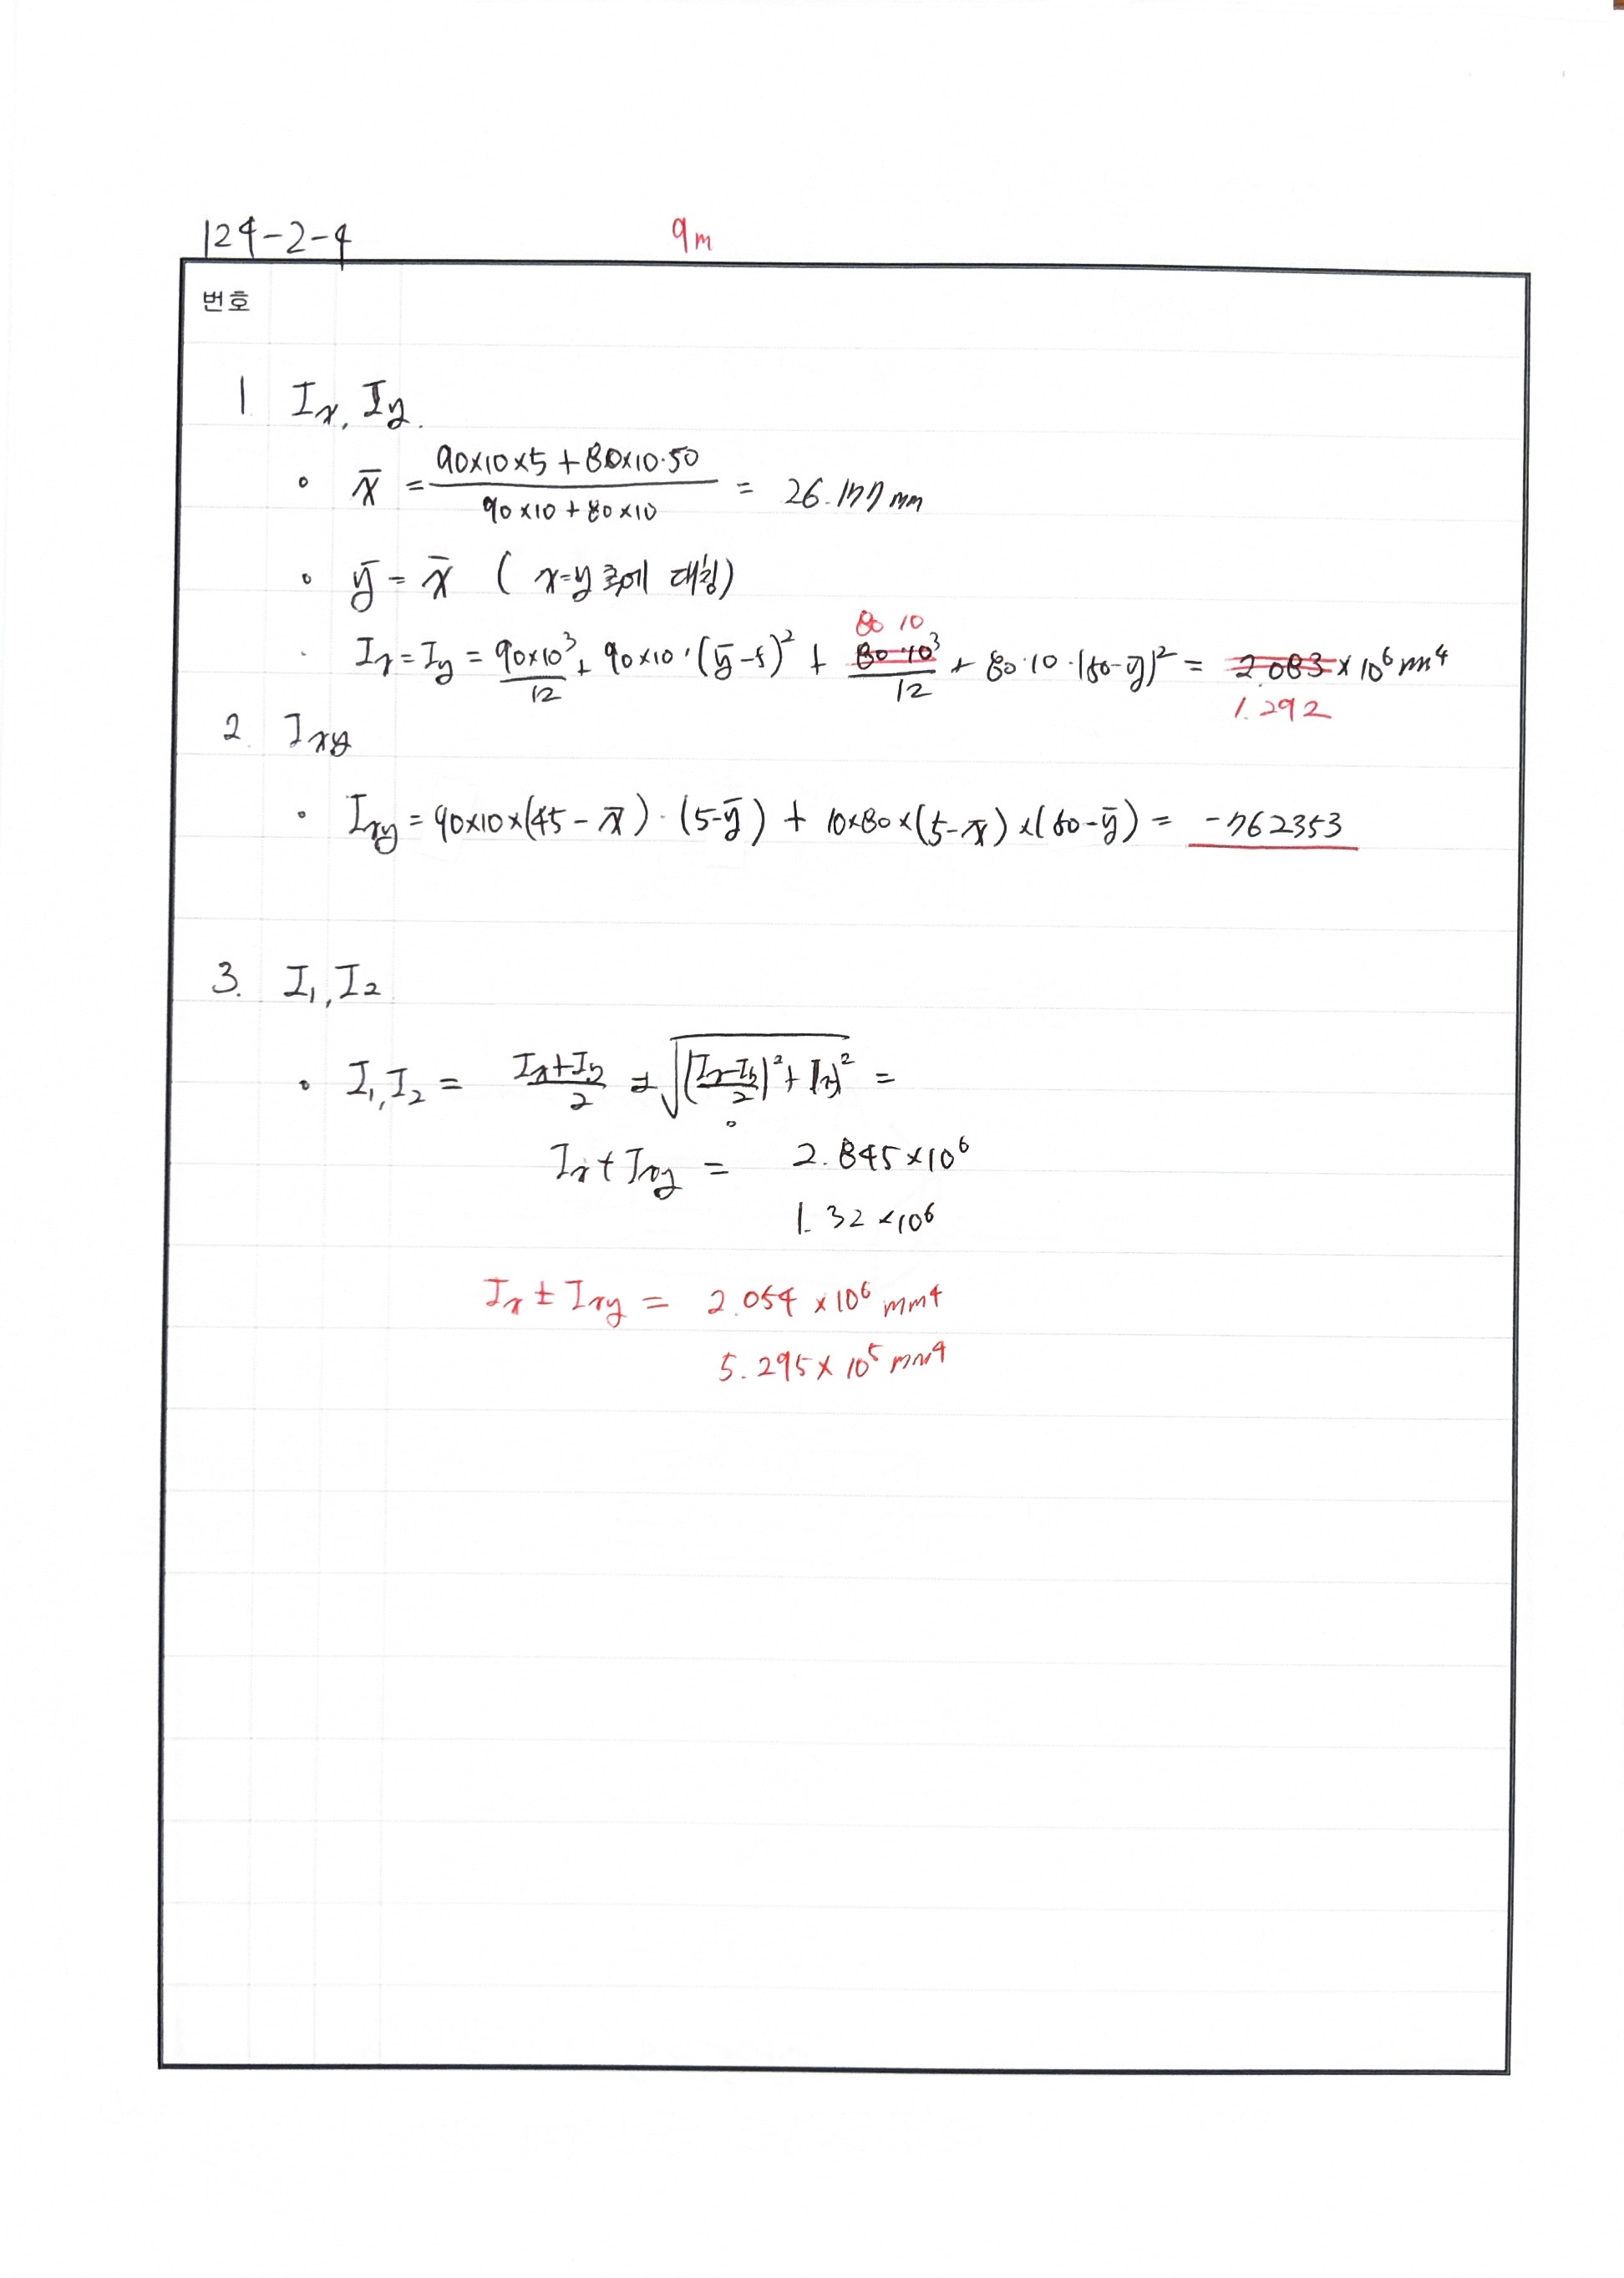 124-2-4 9m
번호
1 Ix, Iy.
∘ x̄ = (90×10×5 + 80×10·50) / (90×10 + 80×10) = 26.177 mm
∘ ȳ = x̄ ( x=y 축에 대칭)
80 10
· Ix = Iy = 90×10³/12 + 90×10·(ȳ-5)² + 80·10³/12 + 80·10·(50-ȳ)² = 2.083 ×10⁶ mm⁴
1.292
2. Ixy
∘ Ixy = 90×10×(45-x̄)·(5-ȳ) + 10×80×(5-x̄)×(50-ȳ) = -762353
3. I₁, I₂
∘ I₁, I₂ = (Ix+Iy)/2 ± √(((Ix-Iy)/2)² + Ixy²) =
Ix ± Ixy = 2.845×10⁶
1.32×10⁶
Ix ± Ixy = 2.054 ×10⁶ mm4
5.295×10⁵ mm4